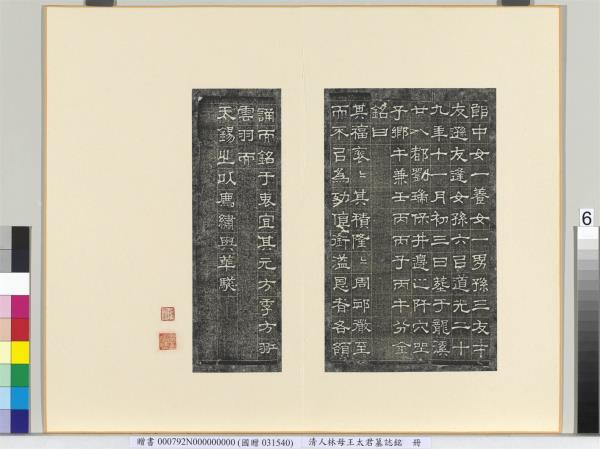 郎中女一養女一男孫三友才
友遜友逢女孫六㠯道光二十
九年十一月初三日葬于龍溪
廿八都劉瑞保井邊之阡穴坐
子鄉午兼壬丙丙子丙午分金
銘曰
其福裒〻其積隆〻周祁徽至
而不㠯為功慎衝溢恩者各領
誦而銘于衷宜其元方季方
雲羽而
天錫之以馬繡與華騣
6
贈書 000792N000000000 (國贈 031540) 清人林母王太君墓誌銘 冊